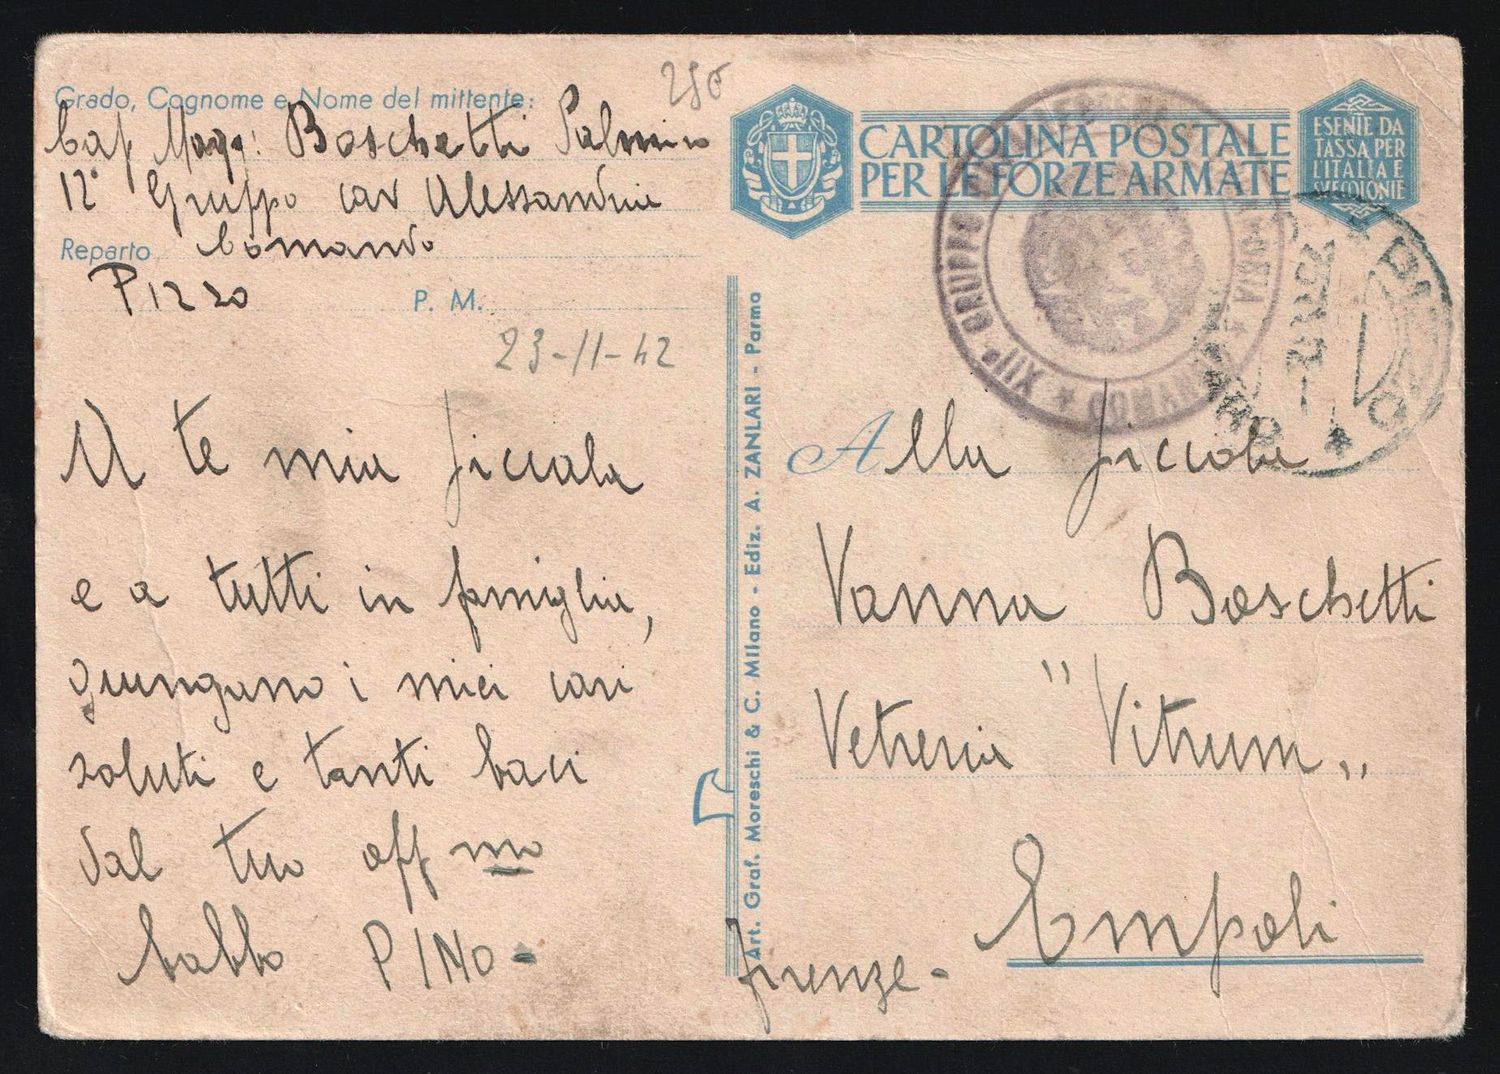 250
Grado, Cognome e Nome del mittente:
Cap Magg: Boschetti Palmiro
12° Gruppo cav Alessandria
Reparto Comando
Pizzo
P. M.
23-11-42
A te mia piccola
e a tutti in famiglia,
giungano i miei cari
saluti e tanti baci
dal tuo aff mo
babbo PINO-
Art. Graf. Moreschi & C. Milano - Ediz. A. ZANLARI - Parma
CARTOLINA POSTALE
PER LE FORZE ARMATE
ESENTE DA
TASSA PER
L'ITALIA E
SUE COLONIE
XII° GRUPPO * COMANDO *
Alla piccola
Vanna Boschetti
Vetreria "Vitrum„
Empoli
Firenze-